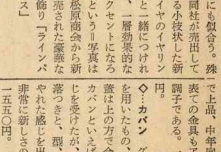 にも似合う。殊
同社が売出して
る小枝状した新
イヤのイヤリン
と一緒につけれ
、一層効果的な
クセントになろ
という＝写真は
松原商会から新
売された豪華な
飾り「ラインパ
で上品、中年向
表ての金具もア
調子である。
円。
◇…カバン
を用いたもの。
蓋は上の方で今
カバンといえば
じを受けたが、
落つきと、型、
やれた感じを出
非常に新しさの
一五五〇円。